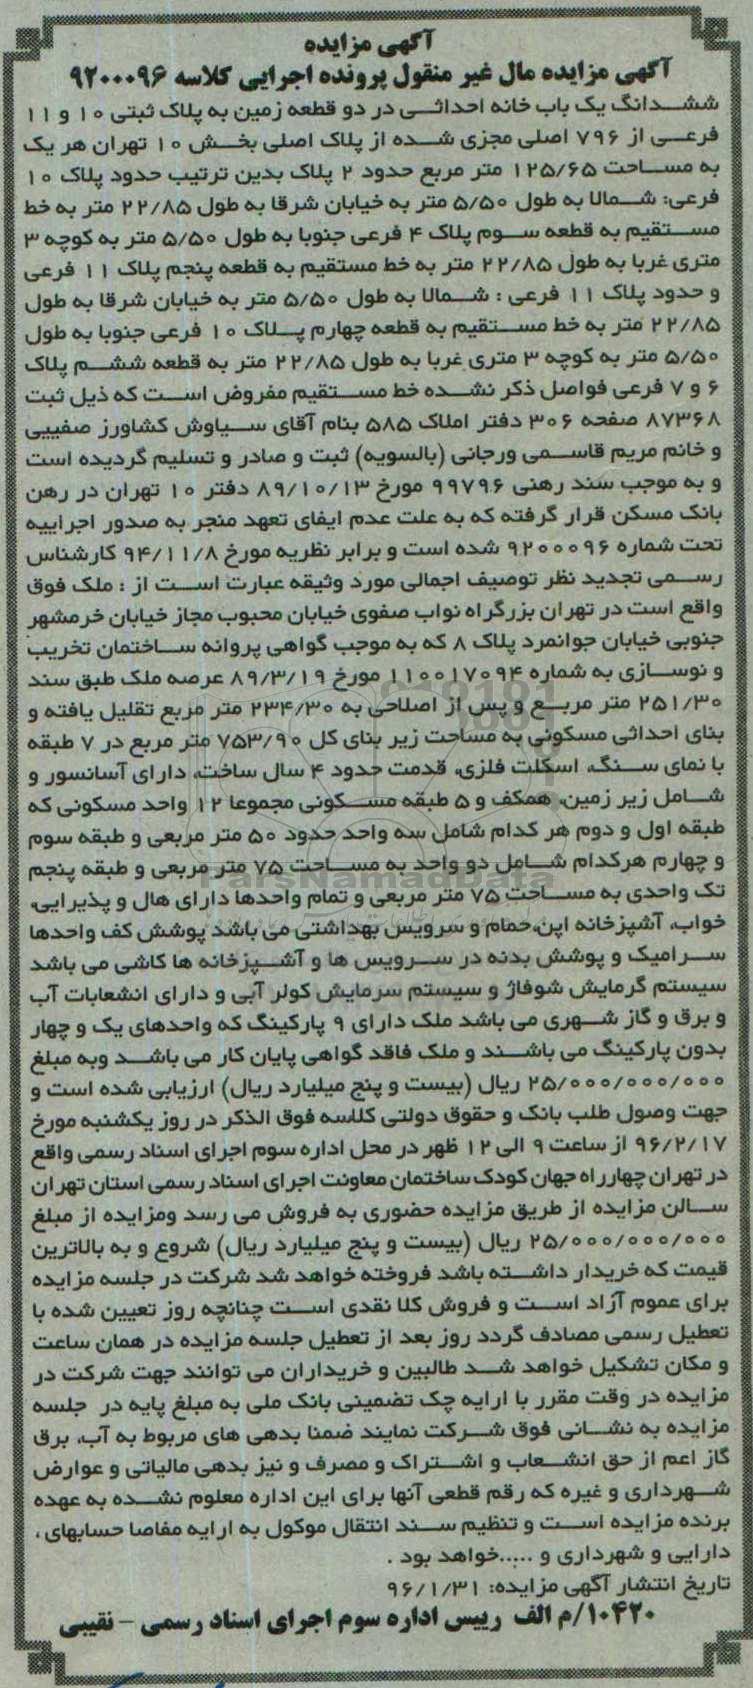 آگهی مزایده
آگهی مزایده مال غیر منقول پرونده اجرایی کلاسه ۹۲۰۰۰۹۶
ششدانگ یک باب خانه احداثی در دو قطعه زمین به پلاک ثبتی ۱۰ و ۱۱
فرعی از ۷۹۶ اصلی مجزی شده از پلاک اصلی بخش ۱۰ تهران هر یک
به مساحت ۱۲۵/۶۵ متر مربع حدود ۲ پلاک بدین ترتیب حدود پلاک ۱۰
فرعی: شمالا به طول ۵/۵۰ متر به خیابان شرقا به طول ۲۲/۸۵ متر به خط
مستقیم به قطعه سوم پلاک ۴ فرعی جنوبا به طول ۵/۵۰ متر به کوچه ۳
متری غربا به طول ۲۲/۸۵ متر به خط مستقیم به قطعه پنجم پلاک ۱۱ فرعی
و حدود پلاک ۱۱ فرعی : شمالا به طول ۵/۵۰ متر به خیابان شرقا به طول
۲۲/۸۵ متر به خط مستقیم به قطعه چهارم پلاک ۱۰ فرعی جنوبا به طول
۵/۵۰ متر به کوچه ۳ متری غربا به طول ۲۲/۸۵ متر به قطعه ششم پلاک
۶ و ۷ فرعی فواصل ذکر نشده خط مستقیم مفروض است که ذیل ثبت
۸۷۳۶۸ صفحه ۳۰۶ دفتر املاک ۵۸۵ بنام آقای سیاوش کشاورز صفییی
و خانم مریم قاسمی ورجانی (بالسویه) ثبت و صادر و تسلیم گردیده است
و به موجب سند رهنی ۹۹۷۹۶ مورخ ۸۹/۱۰/۱۳ دفتر ۱۰ تهران در رهن
بانک مسکن قرار گرفته که به علت عدم ایفای تعهد منجر به صدور اجراییه
تحت شماره ۹۲۰۰۰۹۶ شده است و برابر نظریه مورخ ۹۴/۱۱/۸ کارشناس
رسمی تجدید نظر توصیف اجمالی مورد وثیقه عبارت است از : ملک فوق
واقع است در تهران بزرگراه نواب صفوی خیابان محبوب مجاز خیابان خرمشهر
جنوبی خیابان جوانمرد پلاک ۸ که به موجب گواهی پروانه ساختمان تخریب
و نوسازی به شماره ۱۱۰۰۱۷۰۹۴ مورخ ۸۹/۳/۱۹ عرصه ملک طبق سند
۲۵۱/۳۰ متر مربع و پس از اصلاحی به ۲۳۴/۳۰ متر مربع تقلیل یافته و
بنای احداثی مسکونی به مساحت زیر بنای کل ۷۵۳/۹۰ متر مربع در ۷ طبقه
با نمای سنگ، اسکلت فلزی، قدمت حدود ۴ سال ساخت، دارای آسانسور و
شامل زیر زمین، همکف و ۵ طبقه مسکونی مجموعا ۱۲ واحد مسکونی که
طبقه اول و دوم هر کدام شامل سه واحد حدود ۵۰ متر مربعی و طبقه سوم
و چهارم هرکدام شامل دو واحد به مساحت ۷۵ متر مربعی و طبقه پنجم
تک واحدی به مساحت ۷۵ متر مربعی و تمام واحدها دارای هال و پذیرایی،
خواب، آشپزخانه اپن، حمام و سرویس بهداشتی می باشد پوشش کف واحدها
سرامیک و پوشش بدنه در سرویس ها و آشپزخانه ها کاشی می باشد
سیستم گرمایش شوفاژ و سیستم سرمایش کولر آبی و دارای انشعابات آب
و برق و گاز شهری می باشد ملک دارای ۹ پارکینگ که واحدهای یک و چهار
بدون پارکینگ می باشند و ملک فاقد گواهی پایان کار می باشد وبه مبلغ
۲۵/۰۰۰/۰۰۰/۰۰۰ ریال (بیست و پنج میلیارد ریال) ارزیابی شده است و
جهت وصول طلب بانک و حقوق دولتی کلاسه فوق الذکر در روز یکشنبه مورخ
۹۶/۲/۱۷ از ساعت ۹ الی ۱۲ ظهر در محل اداره سوم اجرای اسناد رسمی واقع
در تهران چهارراه جهان کودک ساختمان معاونت اجرای اسناد رسمی استان تهران
سالن مزایده از طریق مزایده حضوری به فروش می رسد ومزایده از مبلغ
۲۵/۰۰۰/۰۰۰/۰۰۰ ریال (بیست و پنج میلیارد ریال) شروع و به بالاترین
قیمت که خریدار داشته باشد فروخته خواهد شد شرکت در جلسه مزایده
برای عموم آزاد است و فروش کلا نقدی است چنانچه روز تعیین شده با
تعطیل رسمی مصادف گردد روز بعد از تعطیل جلسه مزایده در همان ساعت
و مکان تشکیل خواهد شد طالبین و خریداران می توانند جهت شرکت در
مزایده در وقت مقرر با ارایه چک تضمینی بانک ملی به مبلغ پایه در جلسه
مزایده به نشانی فوق شرکت نمایند ضمنا بدهی های مربوط به آب، برق
گاز اعم از حق انشعاب و اشتراک و مصرف و نیز بدهی مالیاتی و عوارض
شهرداری و غیره که رقم قطعی آنها برای این اداره معلوم نشده به عهده
برنده مزایده است و تنظیم سند انتقال موکول به ارایه مفاصا حسابهای ،
دارایی و شهرداری و .....خواهد بود .
تاریخ انتشار آگهی مزایده: ۹۶/۱/۳۱
۱۰۴۲۰/م الف رییس اداره سوم اجرای اسناد رسمی - نقیبی
ParsNamadData